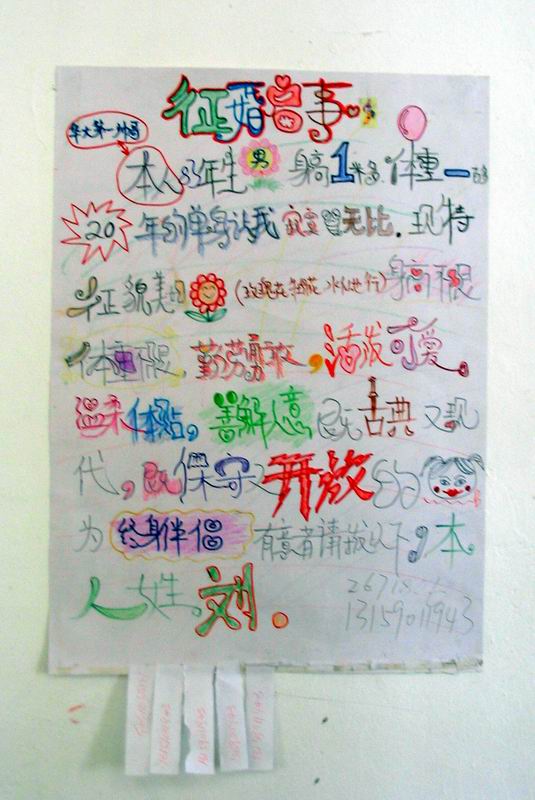 征婚启事
华大第一帅哥
本人83年生 男 身高1米多 体重一百多
20年的单身让我寂寞无比.现特
征貌美的(玫瑰花 桃花 水仙也行)身高不限
体重不限,勤劳勇敢,活泼可爱,
温柔体贴,善解人意既古典又现
代,既保守又开放的
为终身伴侣 有意者请拨以下,本
人姓刘。
13159011943